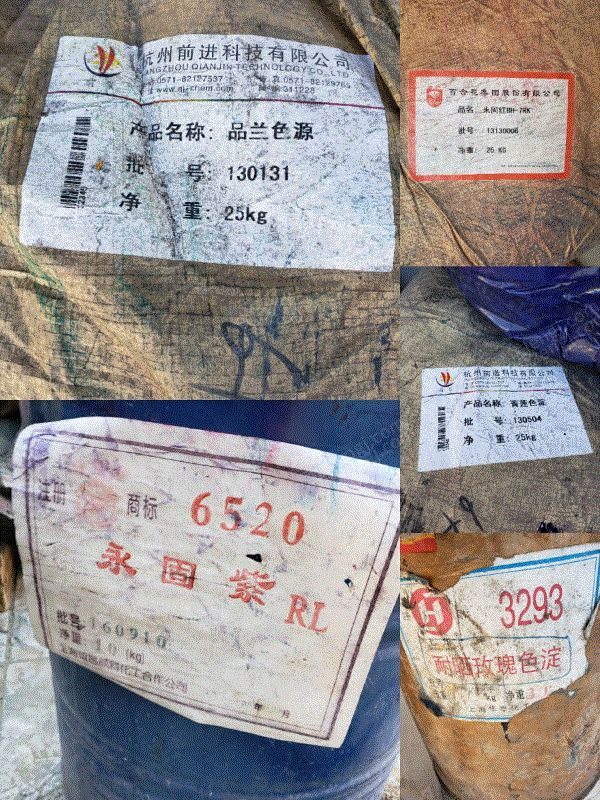 杭州前进科技有限公司
HANGZHOU QIANJIN TECHNOLOGY CO., LTD
0571-82127537 0571-82129765
www.qj-chem.com 311228
产品名称: 品兰色源
批 号: 130131
净 重: 25kg
百合花集团股份有限公司
品名: 永固红BH-7RK
批号: 13130006
净重: 25 KG
杭州前进科技有限公司
产品名称: 青莲色源
批 号: 130504
净 重: 25kg
注册 商标 6520
永固紫 RL
批号: 160910
净重: 10 (kg)
年 月
3293
耐晒玫瑰色淀
净重